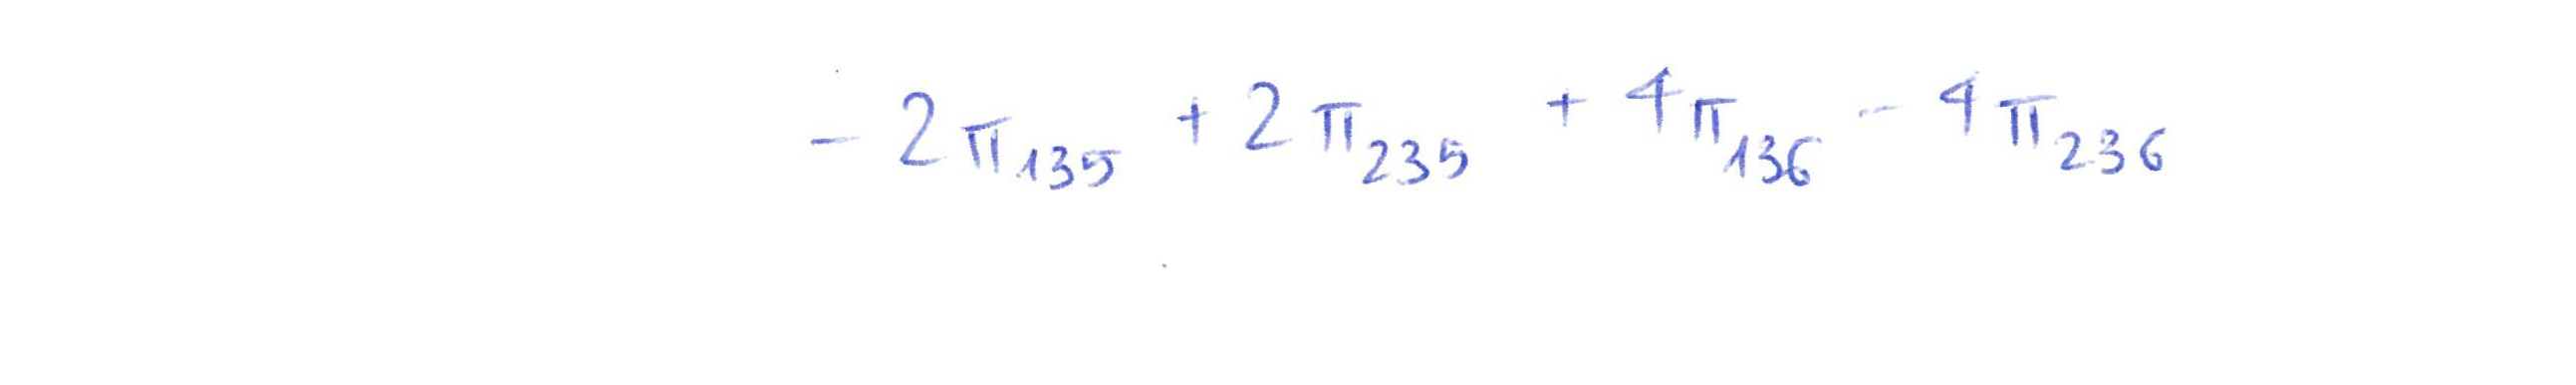 - 2π₁₃₅ + 2π₂₃₅ + 4π₁₃₆ - 4π₂₃₆